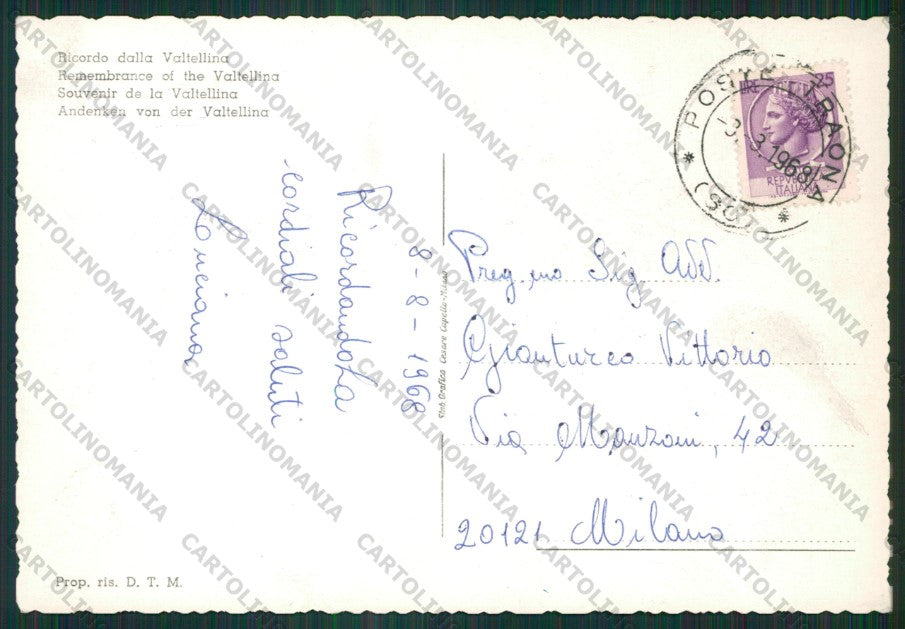 Ricordo dalla Valtellina
Remembrance of the Valtellina
Souvenir de la Valtellina
Andenken von der Valtellina
8-8-1968
RicordandoLa
cordiali saluti
Luciano
Preg.mo Sig. Avv.
Gianturco Vittorio
Via Manzoni, 42
20121 Milano
POSTE TRAONA
1968
(SO)
25
LIRE
REPVBBLICA
ITALIANA
Stab. Grafico Cesare Capello - Milano
Prop. ris. D. T. M.
CARTOLINOMANIA